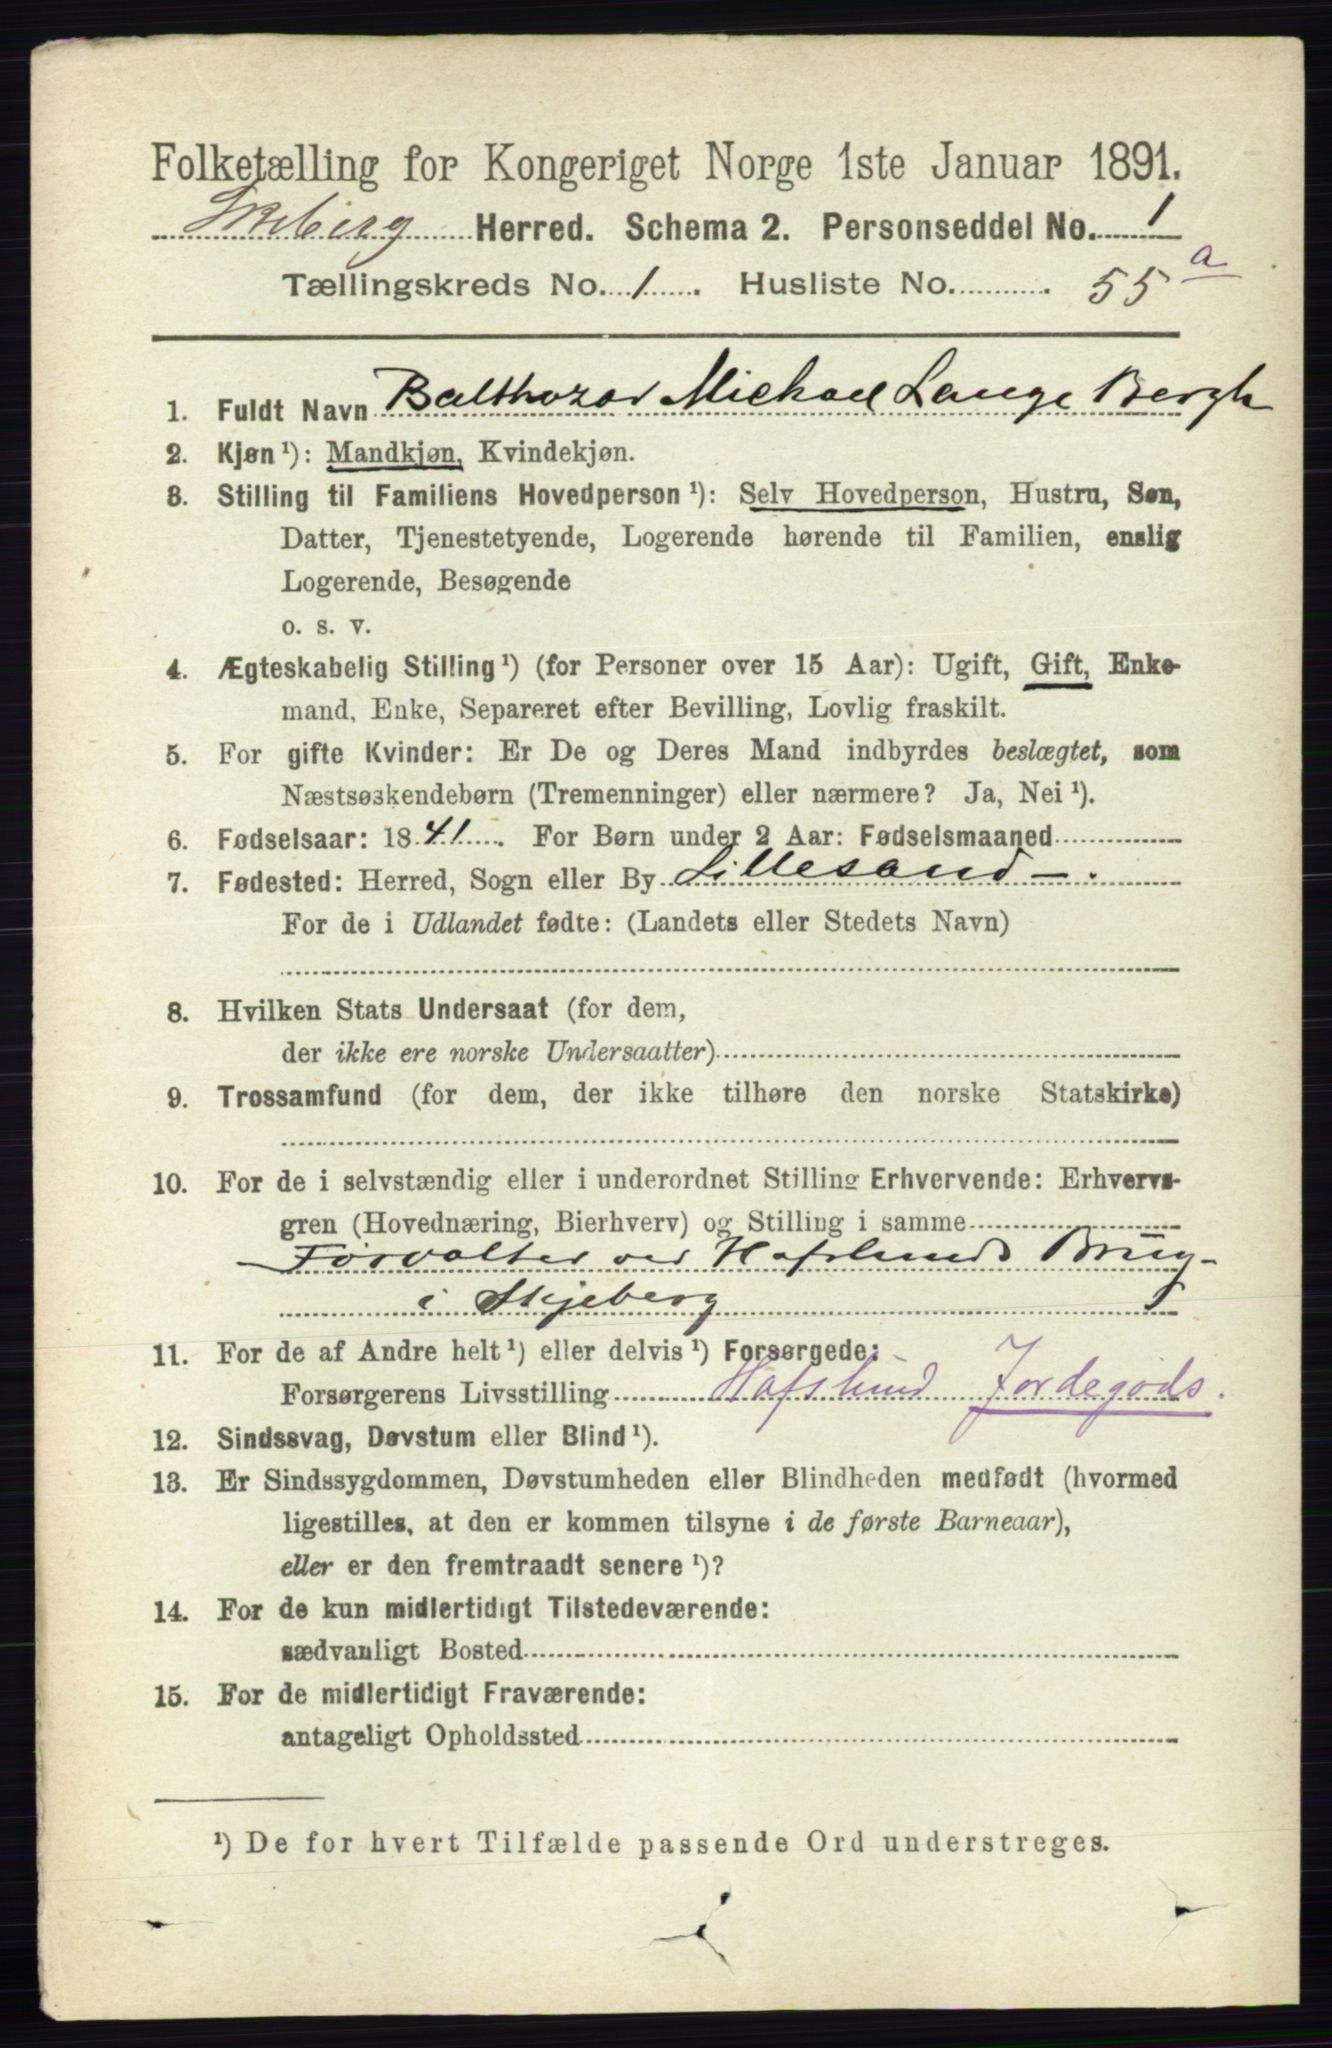 Folketælling for Kongeriget Norge 1ste Januar 1891.
Skeberg Herred. Schema 2. Personseddel No. 1
Tællingskreds No. 1. Husliste No. 55 a
1. Fuldt Navn Balthazar Michael Lange Bergh
2. Kjøn¹): Mandkjøn, Kvindekjøn.
3. Stilling til Familiens Hovedperson¹): Selv Hovedperson, Hustru, Søn,
Datter, Tjenestetyende, Logerende hørende til Familien, enslig
Logerende, Besøgende
o. s. v.
4. Ægteskabelig Stilling¹) (for Personer over 15 Aar): Ugift, Gift, Enke-
mand, Enke, Separeret efter Bevilling, Lovlig fraskilt.
5. For gifte Kvinder: Er De og Deres Mand indbyrdes beslægtet, som
Næstsøskendebørn (Tremenninger) eller nærmere? Ja, Nei¹).
6. Fødselsaar: 1841. For Børn under 2 Aar: Fødselsmaaned
7. Fødested: Herred, Sogn eller By Lillesand -.
For de i Udlandet fødte: (Landets eller Stedets Navn)
8. Hvilken Stats Undersaat (for dem,
der ikke ere norske Undersaatter)
9. Trossamfund (for dem, der ikke tilhøre den norske Statskirke)
10. For de i selvstændig eller i underordnet Stilling Erhvervende: Erhvervs-
gren (Hovednæring, Bierhverv) og Stilling i samme
Forvalter ved Hafslunds Brug -
i Skjeberg
11. For de af Andre helt¹) eller delvis¹) Forsørgede:
Forsørgerens Livsstilling Hafslund Jordegods.
12. Sindssvag, Døvstum eller Blind¹).
13. Er Sindssygdommen, Døvstumheden eller Blindheden medfødt (hvormed
ligestilles, at den er kommen tilsyne i de første Barneaar),
eller er den fremtraadt senere¹)?
14. For de kun midlertidigt Tilstedeværende:
sædvanligt Bosted
15. For de midlertidigt Fraværende:
antageligt Opholdssted
¹) De for hvert Tilfælde passende Ord understreges.